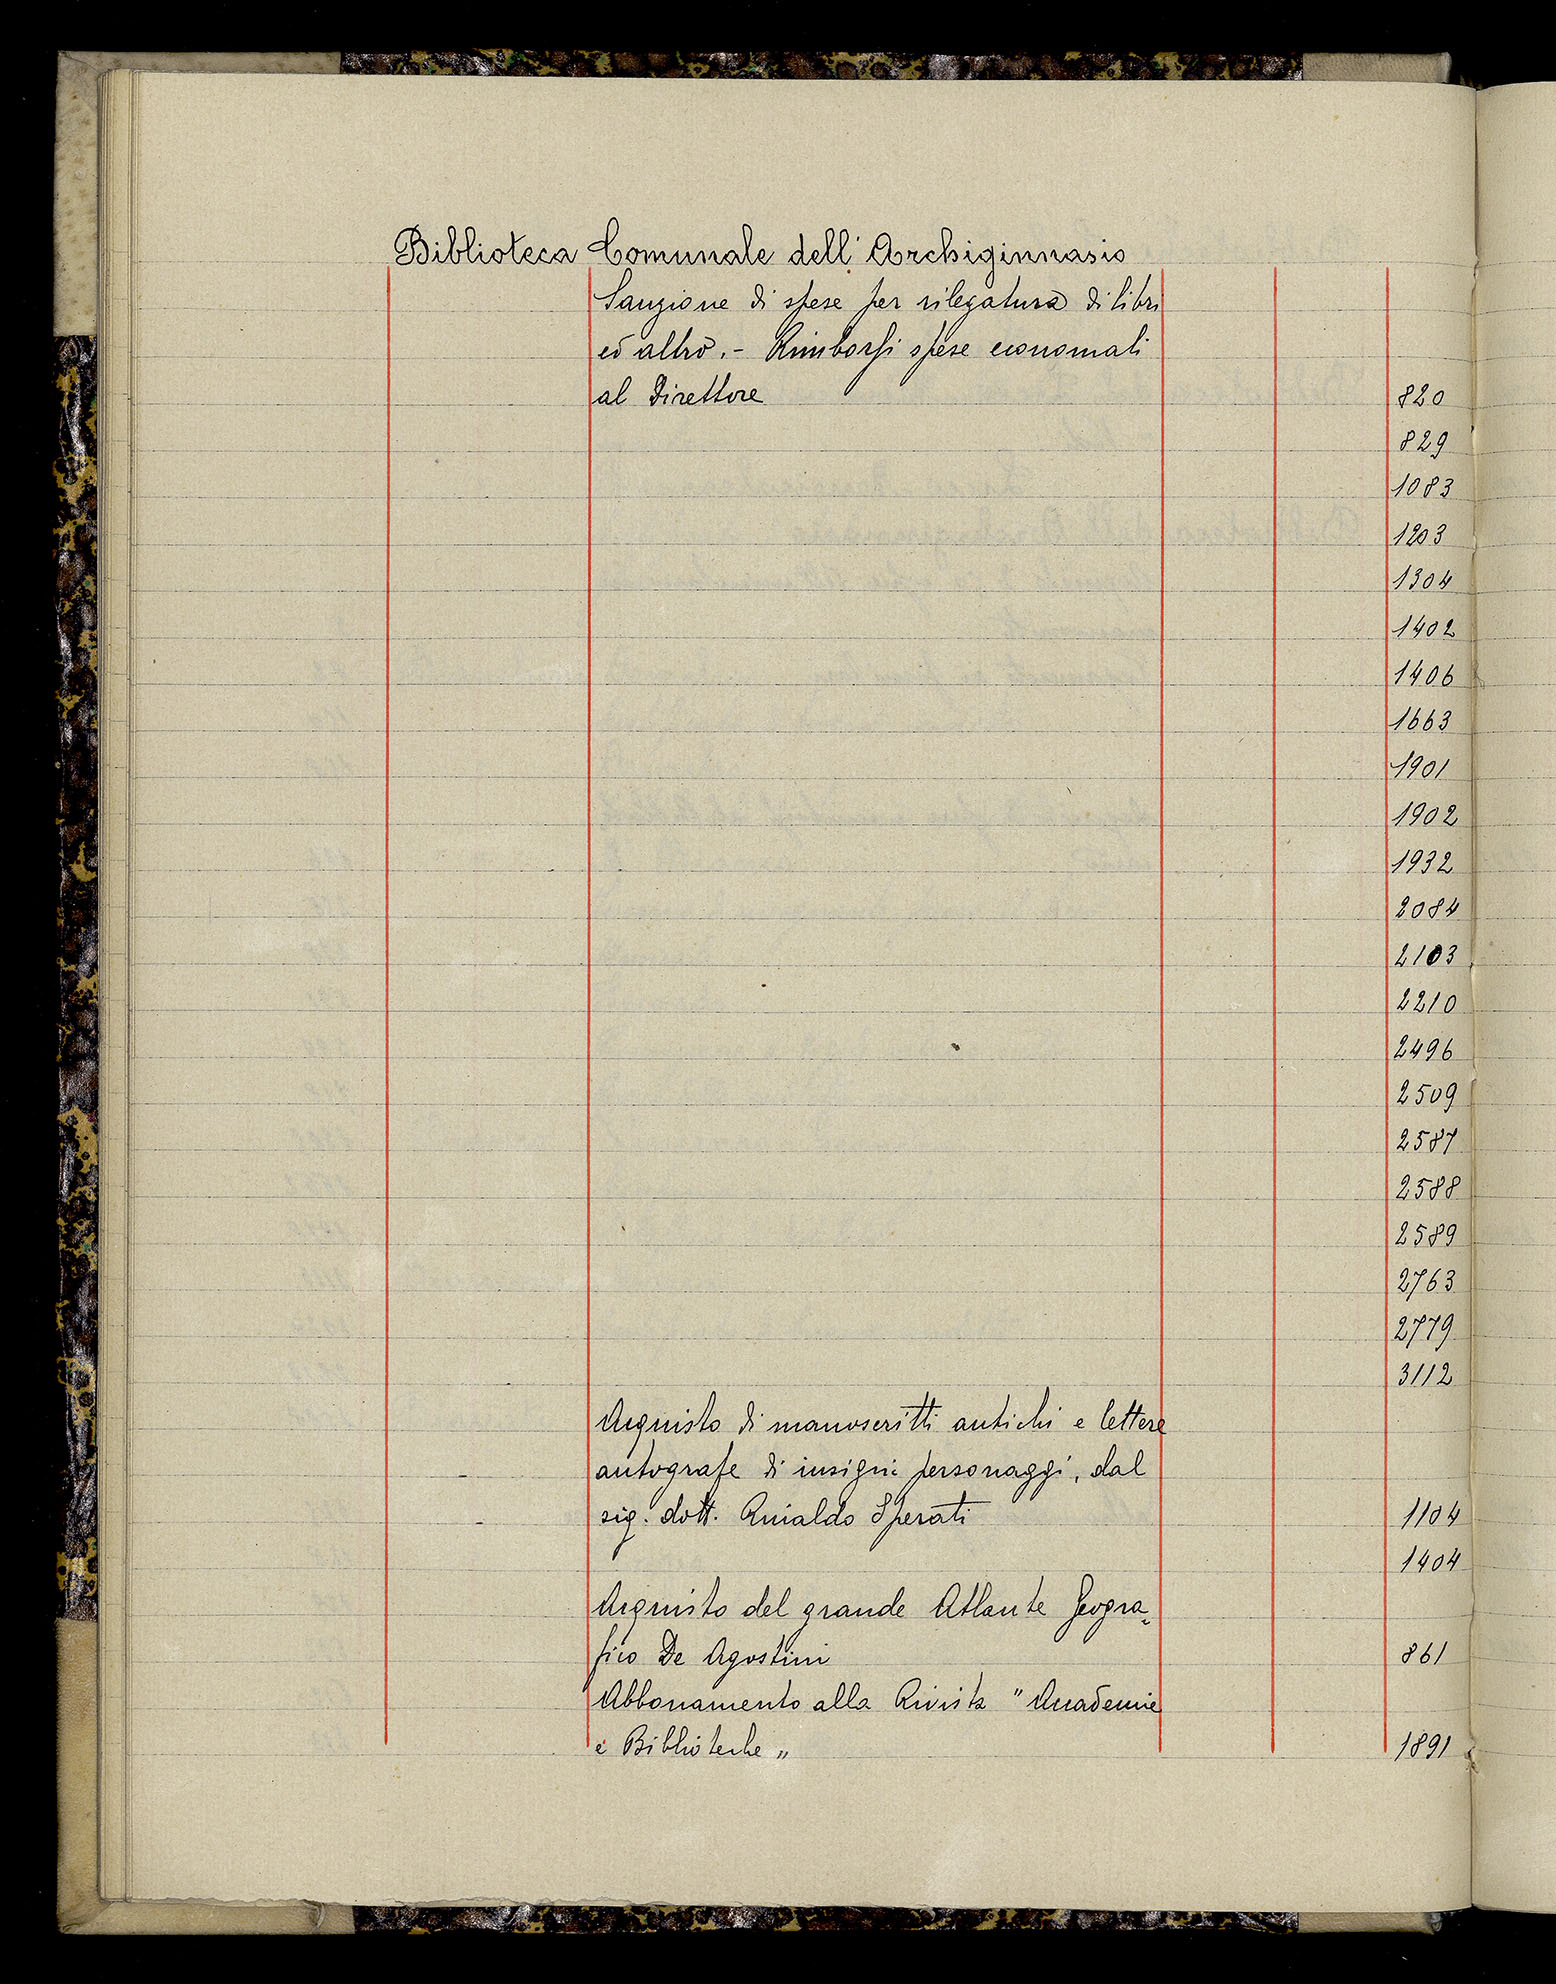 Biblioteca Comunale dell'Archiginnasio
Sanzione di spese per rilegatura di libri
ed altro. - Rimborsi spese economali
al Direttore 820
829
1083
1203
1304
1402
1406
1663
1901
1902
1932
2084
2103
2210
2496
2509
2587
2588
2589
2763
2779
3112
Acquisto di manoscritti antichi e lettere
autografe di insigni personaggi, dal
sig. dott. Rinaldo Sperati 1104
1404
Acquisto del grande Atlante Geogra-
fico De Agostini 861
Abbonamento alla Rivista "Accademie
e Biblioteche" 1891